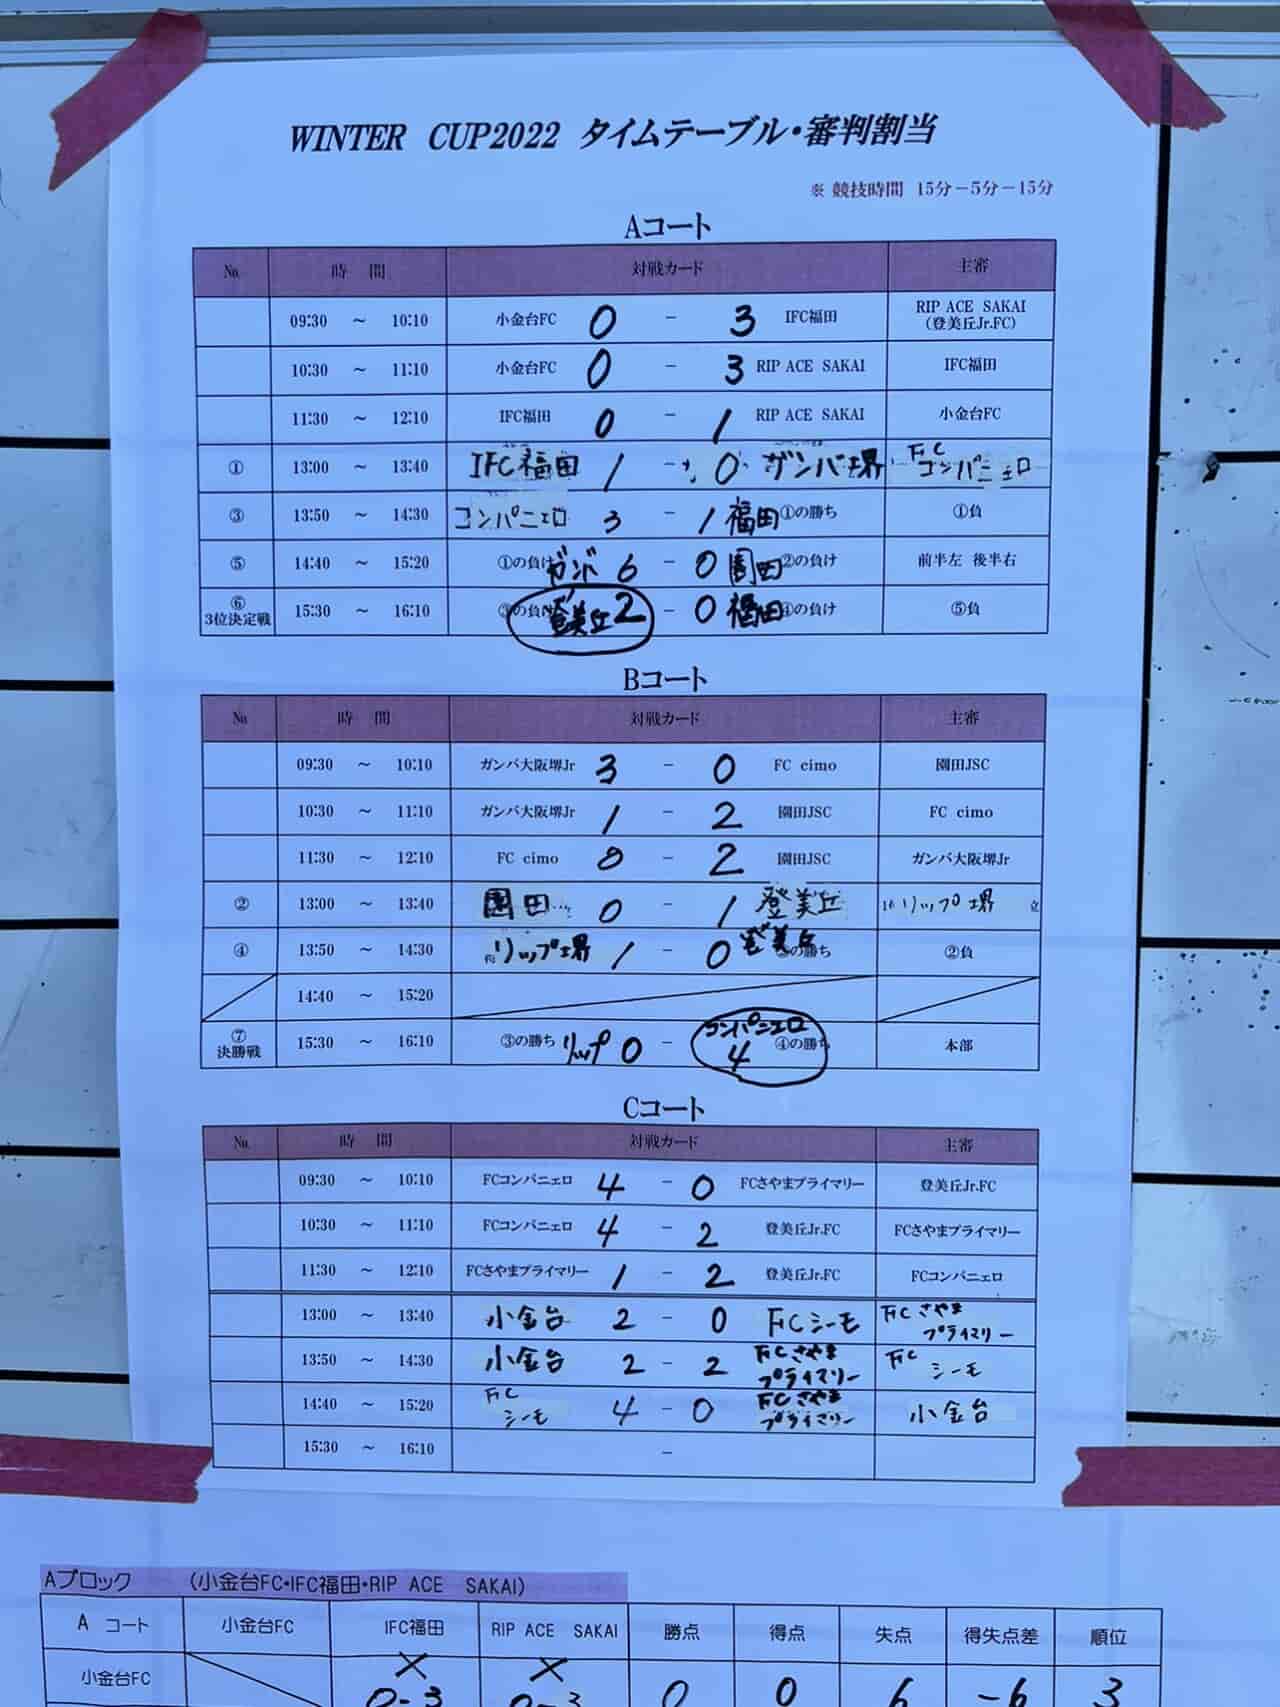 WINTER CUP2022 タイムテーブル・審判割当
※ 競技時間 15分－5分－15分
Aコート
№ 時 間 対戦カード 主審
09:30 ～ 10:10 小金台FC 0 － 3 IFC福田 RIP ACE SAKAI
(登美丘Jr.FC)
10:30 ～ 11:10 小金台FC 0 － 3 RIP ACE SAKAI IFC福田
11:30 ～ 12:10 IFC福田 0 － 1 RIP ACE SAKAI 小金台FC
① 13:00 ～ 13:40 IFC福田 1 － 0 ガンバ堺 FCコンパニェロ
③ 13:50 ～ 14:30 コンパニェロ 3 － 1 福田 ①の勝ち ①負
⑤ 14:40 ～ 15:20 ①の負け ガンバ 6 － 0 園田 ②の負け 前半左 後半右
⑥
3位決定戦 15:30 ～ 16:10 ③の負け 登美丘 2 － 0 福田 ④の負け ⑤負
Bコート
№ 時 間 対戦カード 主審
09:30 ～ 10:10 ガンバ大阪堺Jr 3 － 0 FC cimo 園田JSC
10:30 ～ 11:10 ガンバ大阪堺Jr 1 － 2 園田JSC FC cimo
11:30 ～ 12:10 FC cimo 0 － 2 園田JSC ガンバ大阪堺Jr
② 13:00 ～ 13:40 園田 0 － 1 登美丘 リップ堺
④ 13:50 ～ 14:30 リップ堺 1 － 0 登美丘 の勝ち ②負
14:40 ～ 15:20
⑦
決勝戦 15:30 ～ 16:10 ③の勝ち リップ 0 － コンパニェロ 4 ④の勝ち 本部
Cコート
№ 時 間 対戦カード 主審
09:30 ～ 10:10 FCコンパニェロ 4 － 0 FCさやまプライマリー 登美丘Jr.FC
10:30 ～ 11:10 FCコンパニェロ 4 － 2 登美丘Jr.FC FCさやまプライマリー
11:30 ～ 12:10 FCさやまプライマリー 1 － 2 登美丘Jr.FC FCコンパニェロ
13:00 ～ 13:40 小金台 2 － 0 FCシーモ FCさやまプライマリー
13:50 ～ 14:30 小金台 2 － 2 FCさやまプライマリー FCシーモ
14:40 ～ 15:20 FCシーモ 4 － 0 FCさやまプライマリー 小金台
15:30 ～ 16:10 －
Aブロック (小金台FC・IFC福田・RIP ACE SAKAI)
A コート 小金台FC IFC福田 RIP ACE SAKAI 勝点 得点 失点 得失点差 順位
小金台FC × 0-3 × 0-3 0 0 6 -6 3